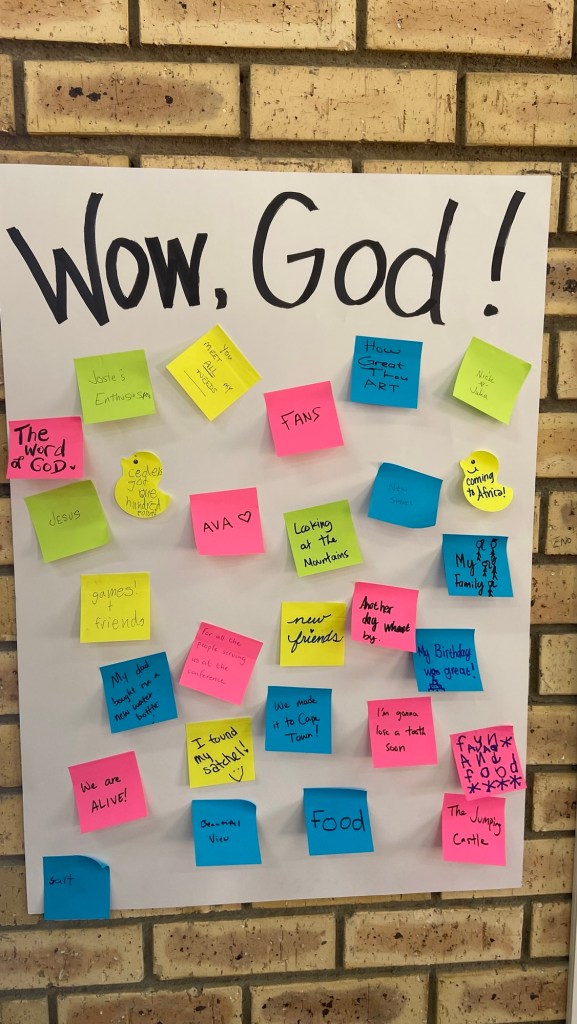 Wow, God!
Josie's
Enthusiasm
You
MEET
ALL MY
NEEDS
How
Great
Thou
ART
Julia
FANS
The
Word
of GOD
god
one
hundred
coming
to Africa!
JESUS
AVA ♡
Looking
at The
Mountains
My
Family
games!
+
friends
new
friends
Another
day
by.
For all the
people serving
us at the
conference
My Birthday
was great!
My dad
bought me a
new water
bottle
We made
it to Cape
Town!
I'm gonna
lose a tooth
soon
I found
my
satchel!
fun
And
food
****
We are
ALIVE!
Beautiful
View
Food
The Jumping
Castle
salt